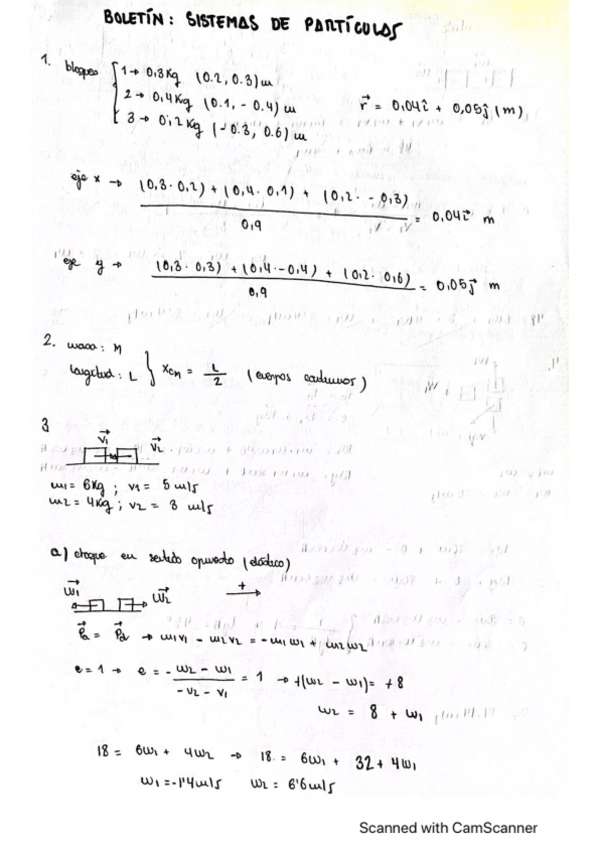 BOLETÍN: SISTEMAS DE PARTÍCULAS
1. bloques
1 → 0,3Kg (0.2, 0.3)m
2 → 0,4Kg (0.1, -0.4)m
3 → 0,2Kg (-0.3, 0.6)m
r⃗ = 0,04i⃗ + 0,05j⃗ (m)
eje x → (0,3 · 0,2) + (0,4 · 0,1) + (0,2 · -0,3) / 0,9 = 0,04i⃗ m
eje y → (0,3 · 0,3) + (0,4 · -0,4) + (0,2 · 0,6) / 0,9 = 0,05j⃗ m
2. masa: M
longitud: L } xcm = L/2 (cuerpos continuos)
3
v⃗1 v⃗2
m1 = 6Kg ; v1 = 5 m/s
m2 = 4Kg ; v2 = 3 m/s
a) choque en sentido opuesto (elástico)
w⃗1 w⃗2 +
m1v1 - m2v2 = -m1w1 + m2w2
e = 1 → e = - w2 - w1 / -v2 - v1 = 1 → +(w2 - w1) = +8
w2 = 8 + w1
18 = 6w1 + 4w2 → 18 = 6w1 + 32 + 4w1
w1 = -1'4m/s w2 = 6'6m/s
Scanned with CamScanner